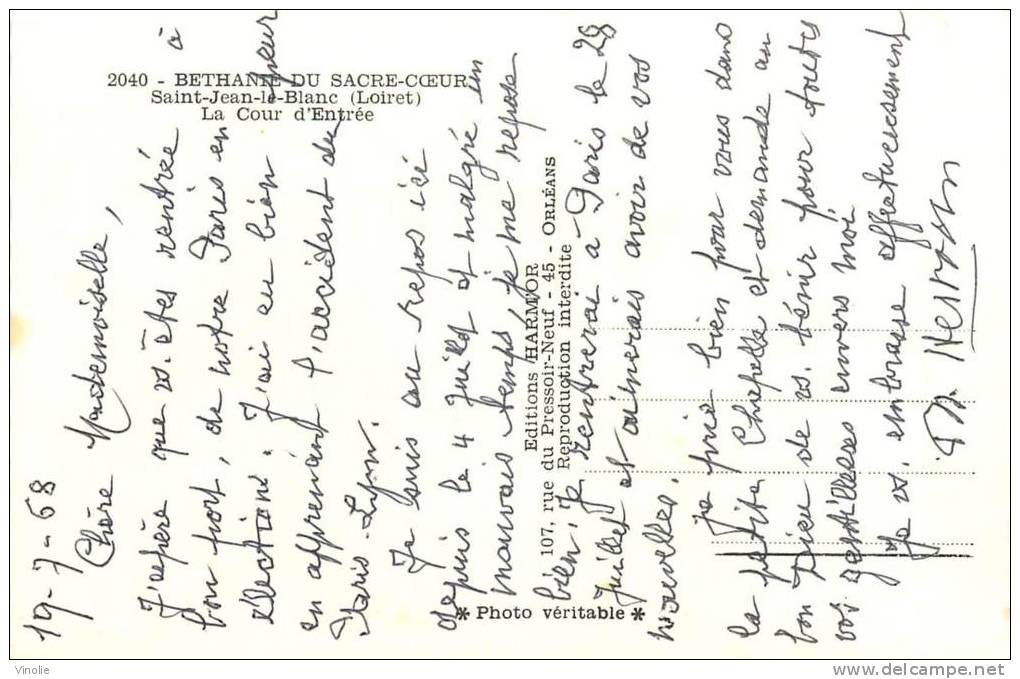 2040 - BETHANIE DU SACRE-CŒUR
Saint-Jean-le-Blanc (Loiret)
La Cour d'Entrée
19-7-68
Chère Mademoiselle,
J'espère que vs. êtes rentrée à
bon port, de notre Paris en
élections. J'ai eu bien peur
en apprenant l'accident du
Paris-Lyon.
Je suis au repos ici
depuis le 4 Juillet et malgré un
mauvais temps, je me repose
bien. Je rentrerai à Paris le 28
Juillet et aimerais avoir de vos
nouvelles.
Je prie bien pour vous dans
la petite Chapelle et demande au
bon Dieu de vs. bénir pour toutes
vos gentillesses envers moi
Je vs. embrasse affectueusement
Editions HARM'OR
107, rue du Pressoir-Neuf - 45 - ORLÉANS
Reproduction interdite
* Photo véritable *
Vinolie
www.delcampe.net